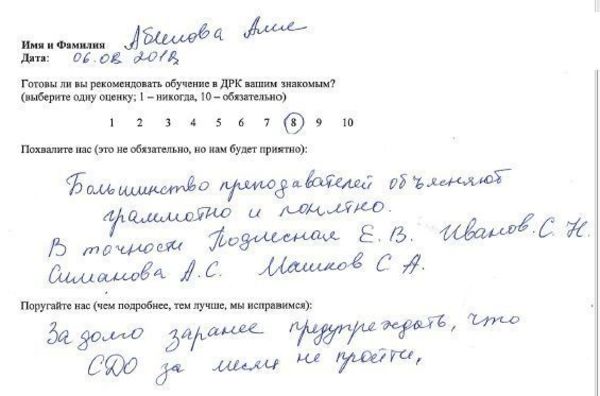 Имя и Фамилия Абилова Алие
Дата: 06.08 2018
Готовы ли вы рекомендовать обучение в ДРК вашим знакомым?
(выберите одну оценку; 1 – никогда, 10 – обязательно)
1 2 3 4 5 6 7 8 9 10
Похвалите нас (это не обязательно, но нам будет приятно):
Большинство преподавателей объясняют
граммотно и понятно.
В точности Подлесная Е. В. Иванов. С. Н.
Симанова А.С. Машков С А.
Поругайте нас (чем подробнее, тем лучше, мы исправимся):
За долго заранее предупреждать, что
СДО за месяц не пройти,